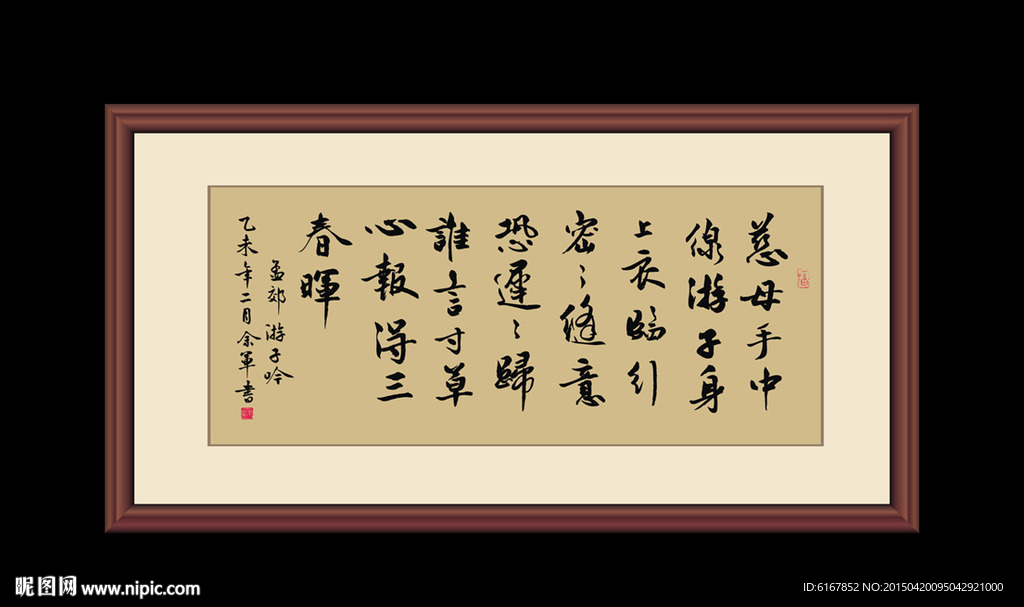 慈母手中
線游子身
上衣臨行
密〻縫意
恐遲〻歸
誰言寸草
心報得三
春暉
孟郊游子吟
乙未年二月余軍書
昵图网 www.nipic.com
ID:6167852 NO:20150420095042921000